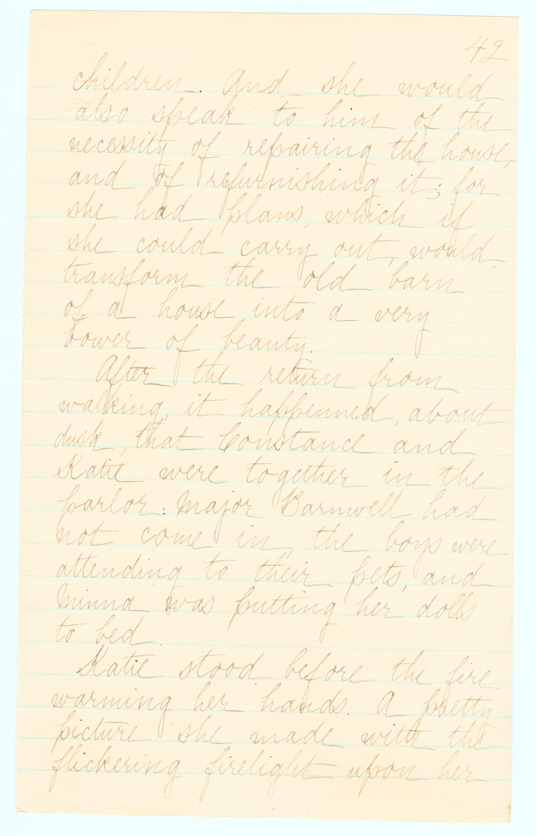 42
children. And she would
also speak to him of the
necessity of repairing the house,
and of refurnishing it; for
she had plans, which if
she could carry out, would
transform the old barn
of a house into a very
bower of beauty.
After the return from
walking, it happenned, about
dusk, that Constance and
Katie were together in the
parlor: Major Barnwell had
not come in, the boys were
attending to their pets, and
Minna was putting her dolls
to bed.
Katie stood before the fire
warming her hands. A pretty
picture she made with the
flickering firelight upon her